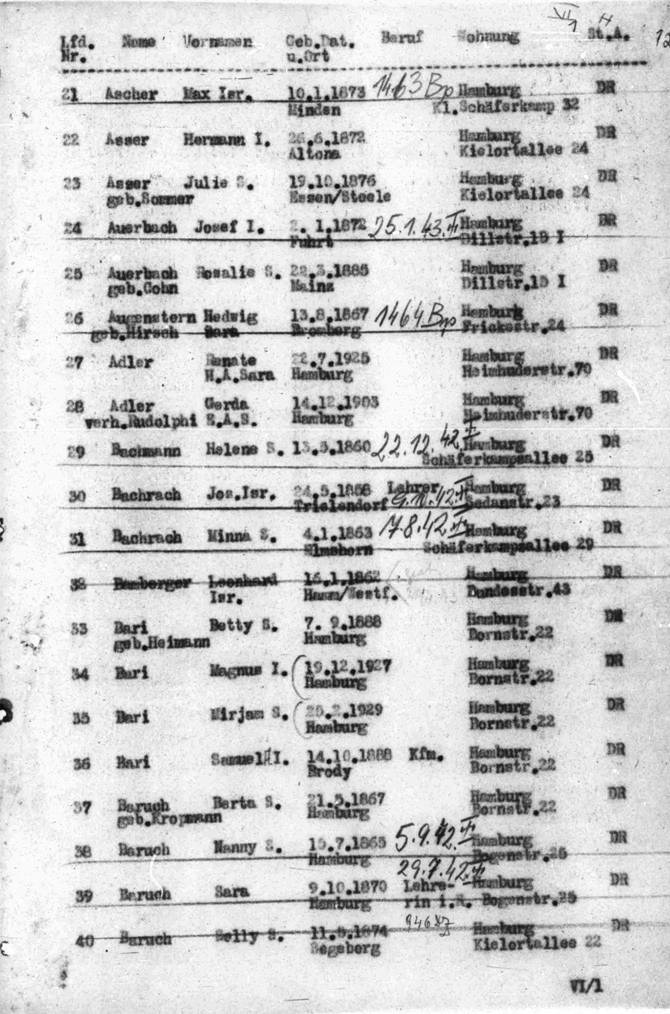 VI/1 H 12
Lfd. Name Vornamen Geb.Dat. Beruf Wohnung St.A.
Nr. u.Ort
21 Ascher Max Isr. 10.1.1873 1463 Bp Hamburg DR
Minden Kl.Schäferkamp 32
22 Asser Hermann I. 26.6.1872 Hamburg DR
Altona Kielortallee 24
23 Asser Julie S. 19.10.1876 Hamburg DR
geb.Sommer Essen/Steele Kielortallee 24
24 Auerbach Josef I. 2. 1.1872 25.1.43. Hamburg DR
Furht Dillstr.15 I
25 Auerbach Rosalie S. 22.3.1885 Hamburg DR
geb.Cohn Mainz Dillstr.15 I
26 Augenstern Hedwig 13.8.1867 1464 Bp Hamburg DR
geb.Hirsch Sara Bromberg Frickestr.24
27 Adler Renate 22.7.1925 Hamburg DR
H.A.Sara Hamburg Heimhuderstr.70
28 Adler Gerda 14.12.1903 Hamburg DR
verh.Rudolphi E.A.S. Hamburg Heimhuderstr.70
29 Bachmann Helene S. 13.5.1860 22.12.42 Hamburg DR
Schäferkampsallee 25
30 Bachrach Jos.Isr. 24.5.1858 Lehrer Hamburg DR
Trielendorf 9.11.42 Sedanstr.23
31 Bachrach Minna S. 4.1.1863 17.8.42 Hamburg DR
Elmshorn Schäferkampsallee 29
32 Bamberger Leonhard 16.1.1862 Hamburg DR
Isr. Hamm/Westf. Bundesstr.43
33 Bari Betty S. 7. 9.1888 Hamburg DR
geb.Heimann Hamburg Bornstr.22
34 Bari Magnus I. 19.12.1927 Hamburg DR
Hamburg Bornstr.22
35 Bari Mirjam S. 25.2.1929 Hamburg DR
Hamburg Bornstr.22
36 Bari Samuel I. 14.10.1888 Kfm. Hamburg DR
Brody Bornstr.22
37 Baruch Berta S. 21.5.1867 Hamburg DR
geb.Kropmann Hamburg Bornstr.22
38 Baruch Nanny S. 15.7.1865 5.9.42 Hamburg DR
Hamburg Bogenstr.25
29.7.42
39 Baruch Sara 9.10.1870 Lehre- Hamburg DR
Hamburg rin i.R. Bogenstr.25
40 Baruch Selly S. 11.5.1874 Hamburg DR
Segeberg Kielortallee 22
VI/1